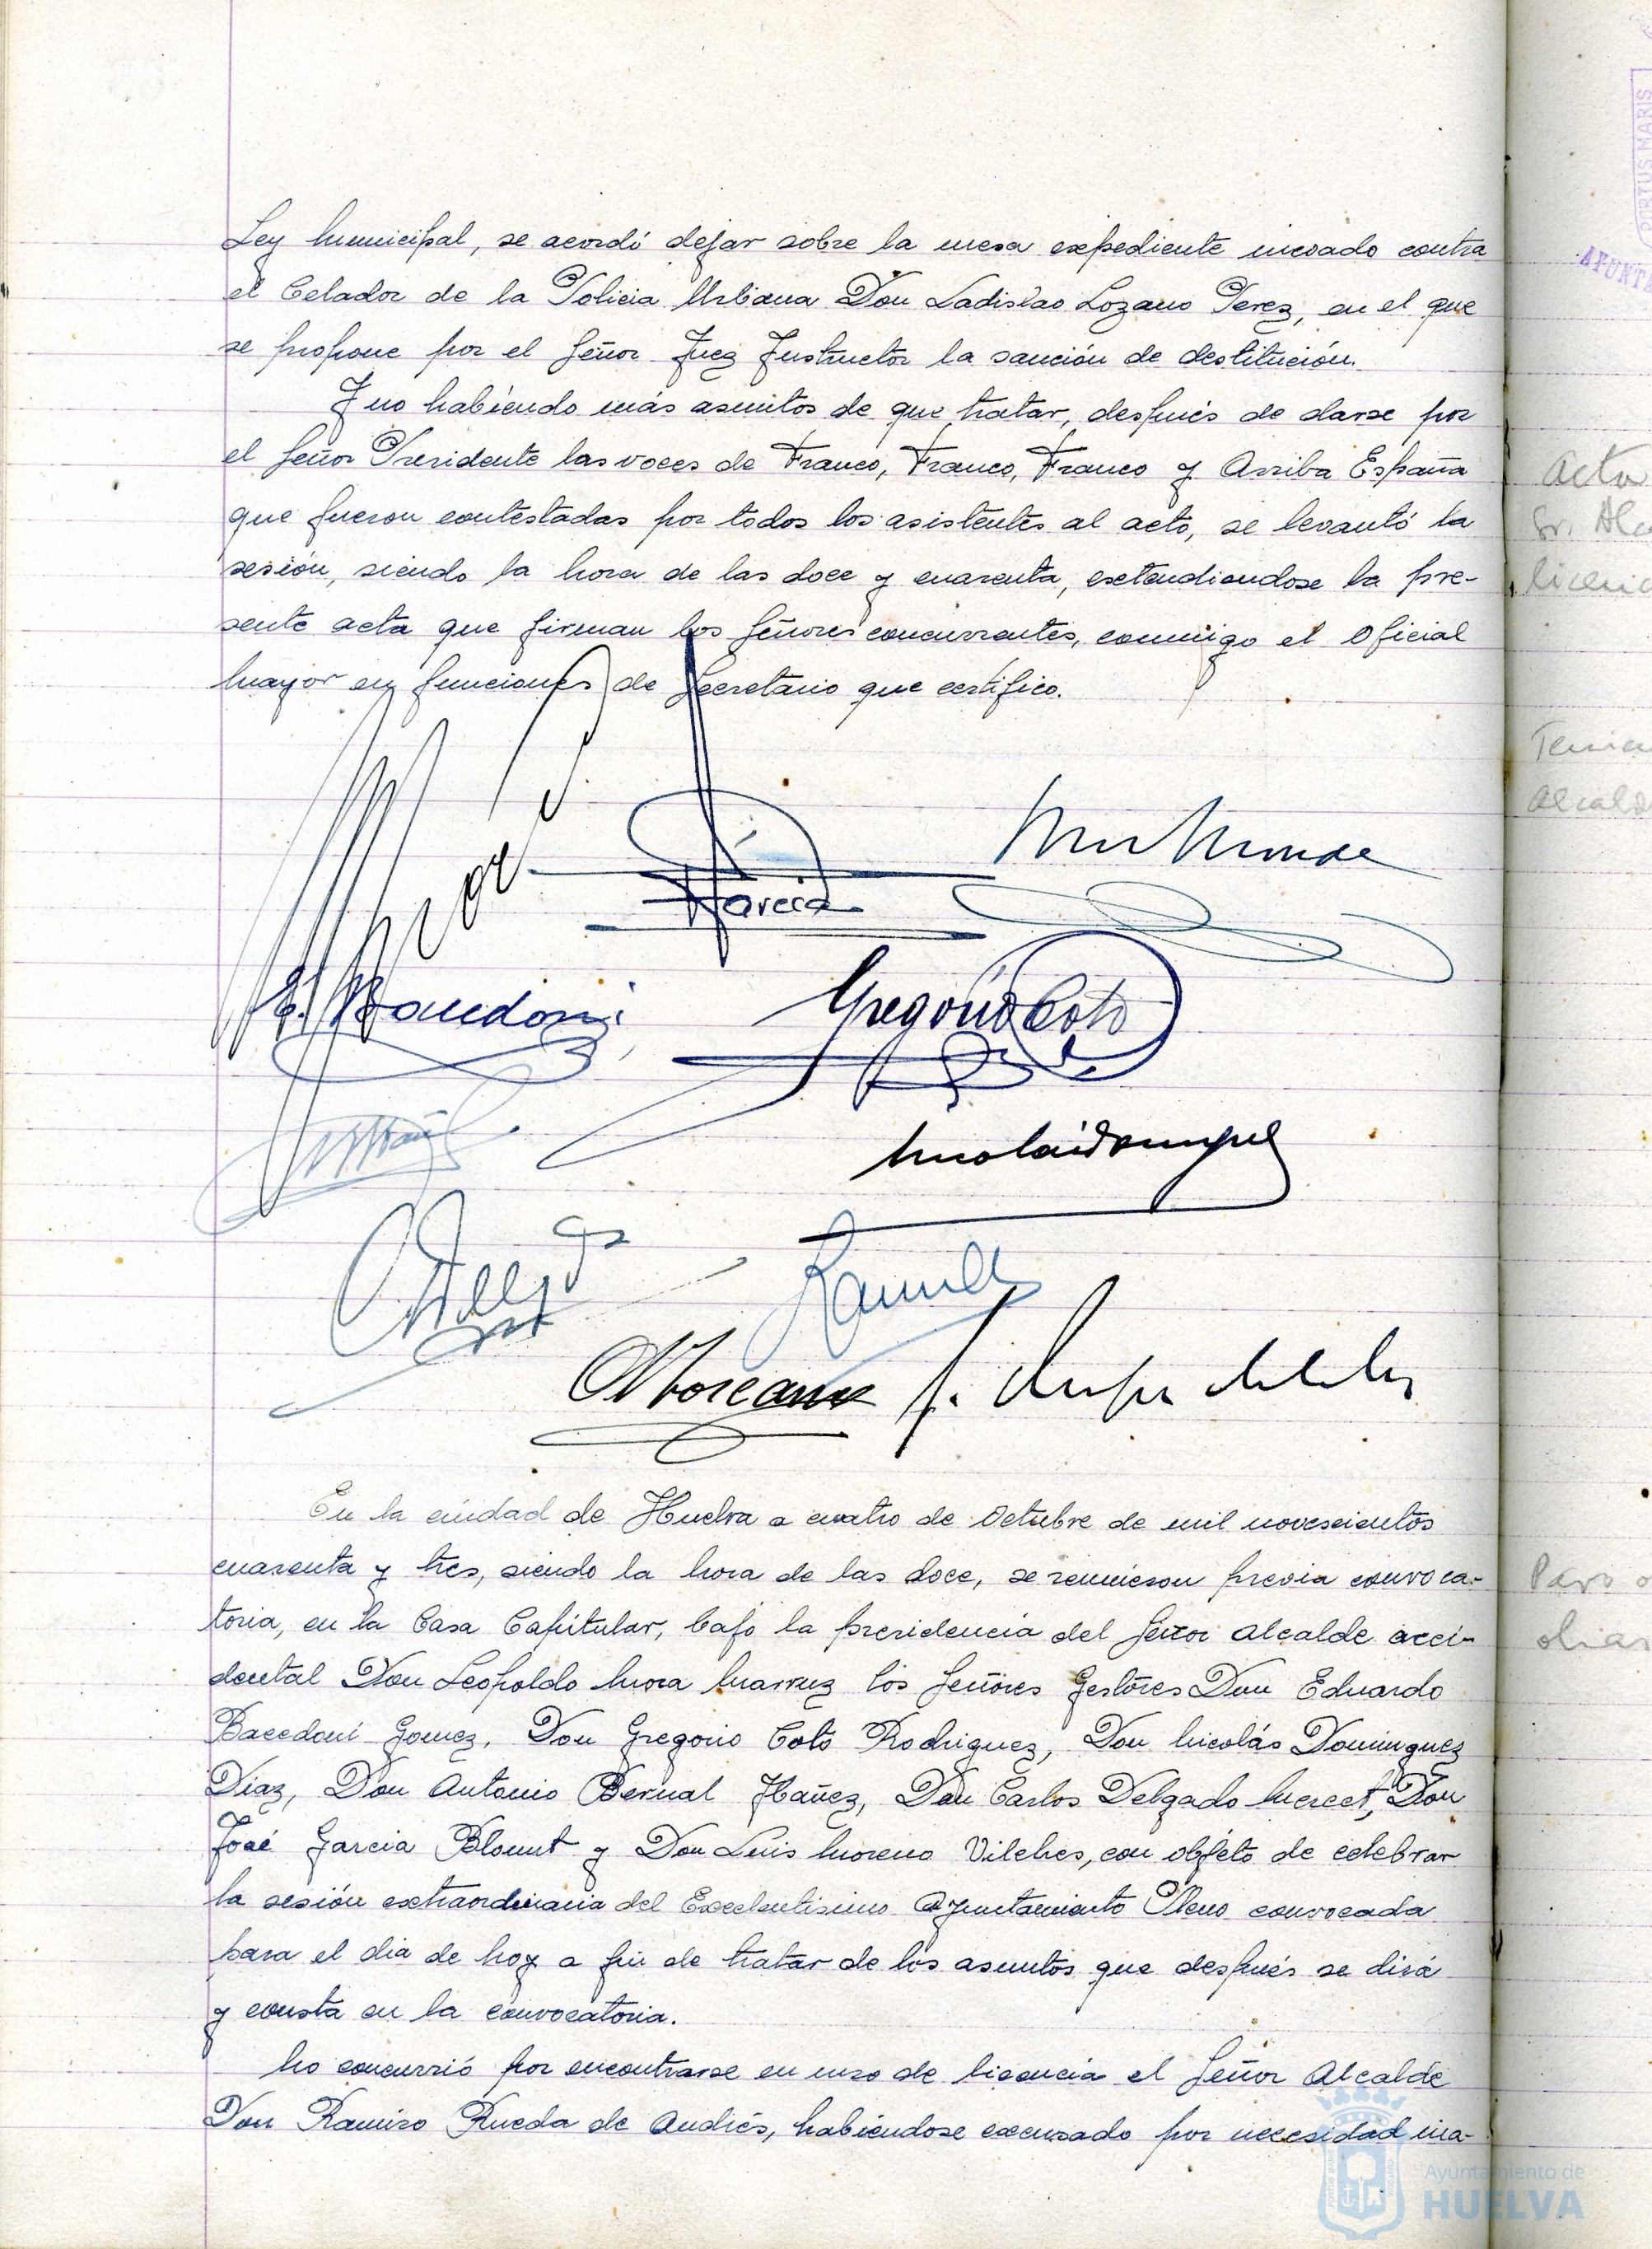 Ley Municipal, se acordó dejar sobre la mesa expediente incoado contra
el Celador de la Policia Urbana Don Ladislao Lozano Perez, en el que
se propone por el Señor Juez Instructor la sanción de destitución.
Y no habiendo más asuntos de que tratar, después de darse por
el Señor Presidente las voces de Franco, Franco, Franco y Arriba España
que fueron contestadas por todos los asistentes al acto, se levantó la
sesión, siendo la hora de las doce y cuarenta, extendiendose la pre-
sente acta que firman los Señores concurrentes, conmigo el Oficial
Mayor en funciones de Secretario que certifico.
Garcia
E. Bacedoni
Gregorio Coto
Nicolás Dominguez
L. Moreano
En la ciudad de Huelva a cuatro de Octubre de mil novescientos
cuarenta y tres, siendo la hora de las doce, se reunieron previa convoca-
toria, en la Casa Capitular, bajo la presidencia del Señor Alcalde acci-
dental Don Leopoldo Mora Marruz los Señores Gestores Don Eduardo
Bacedoni Gomez, Don Gregorio Coto Rodriguez, Don Nicolás Dominguez
Diaz, Don Antonio Bernal Ibañez, Don Carlos Delgado Mercet, Don
José Garcia Blount y Don Luis Moreno Vilches, con objeto de celebrar
la sesión extraordinaria del Excelentisimo Ayuntamiento Pleno convocada
para el dia de hoy a fin de tratar de los asuntos que después se dirá
y consta en la convocatoria.
No concurrió por encontrarse en uso de licencia el Señor Alcalde
Don Ramiro Rueda de Andrés, habiéndose excusado por necesidad ina-
Acta
Sr. Alc
licenc
Tenien
Alcald
Paro o
PORTUS MARIS
AYUNTA
Ayuntamiento de
HUELVA